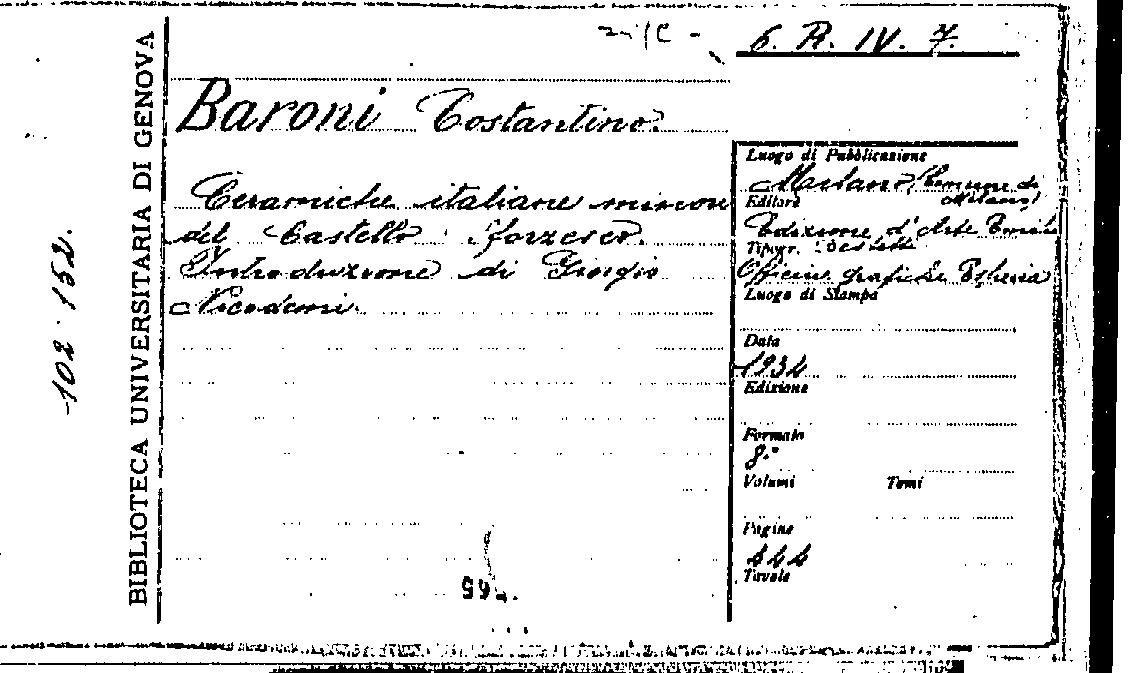 6. R. IV. 7.
BIBLIOTECA UNIVERSITARIA DI GENOVA
102152.
Baroni Costantino.
Ceramiche italiane minori
del Castello Sforzesco.
Introduzione di Giorgio
Nicodemi.
Luogo di Pubblicazione
Milano, Comune di
Milano
Editore
Edizione d'Arte Emilio
Bestetti
Tipogr.
Officine grafiche Esperia
Luogo di Stampa
Data
1934
Edizione
Formato
8.°
Volumi Tomi
Pagine
444
Tavole